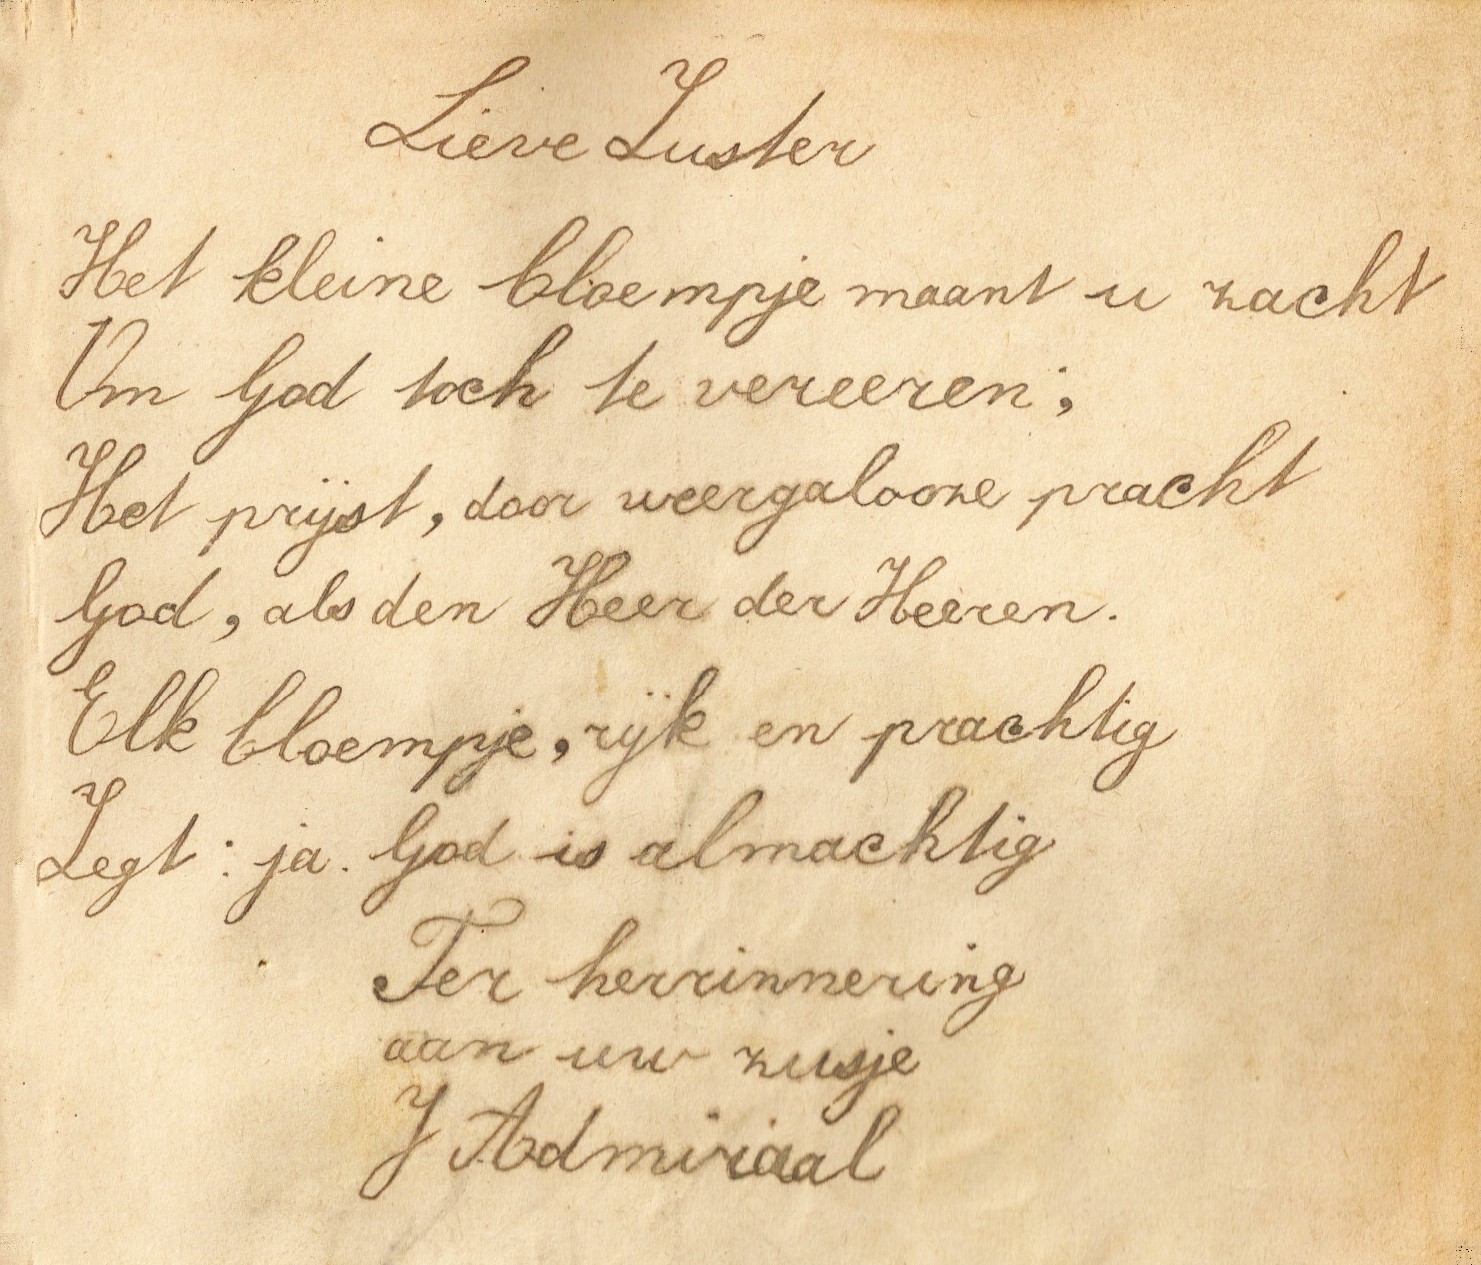 Lieve Zuster
Het kleine bloempje maant u zacht
Om God toch te vereeren;
Het prijst, door weergalooze pracht
God, als den Heer der Heeren.
Elk bloempje, rijk en prachtig
Zegt: ja. God is almachtig
Ter herrinnering
aan uw zusje
J Admiraal